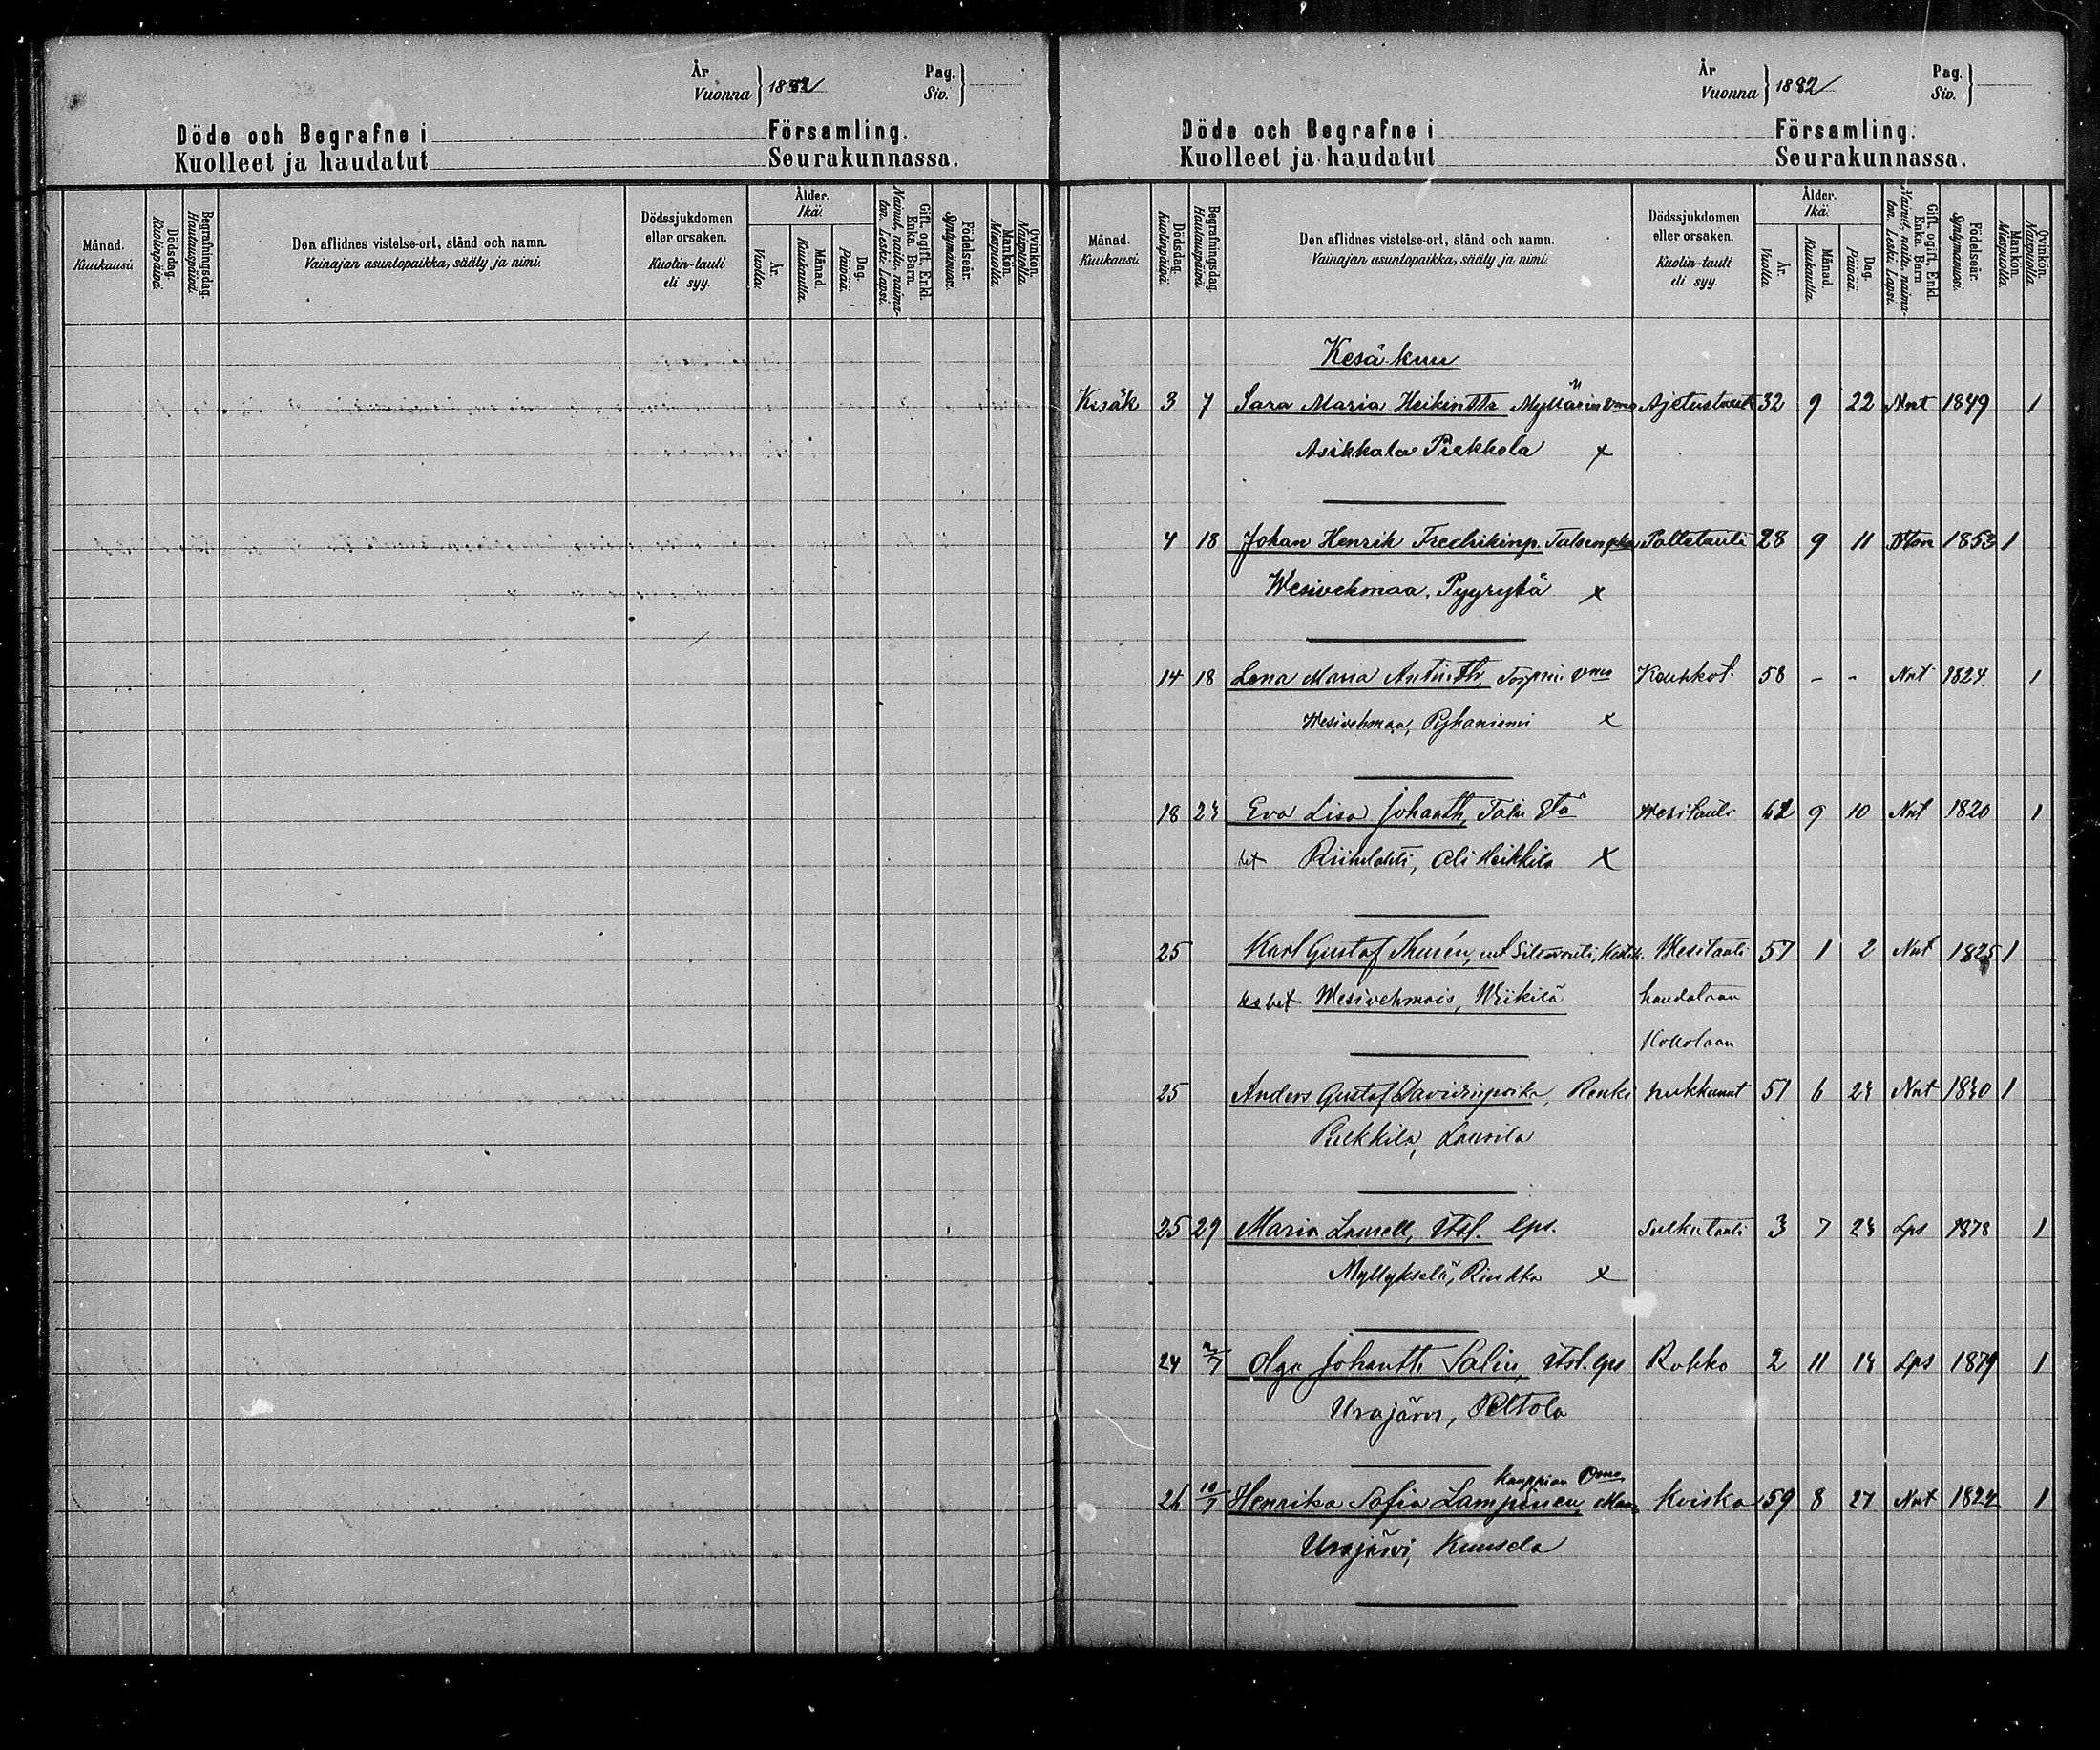 År
Vuonna } 1882
Pag.
Siv. }
Döde och Begrafne i Församling.
Kuolleet ja haudatut Seurakunnassa.
Månad. Kuukausi.
Dödsdag. Kuolinpäivä.
Begrafningsdag. Hautauspäivä
Den aflidnes vistelse-ort, stånd och namn.
Vainajan asuntopaikka, sääty ja nimi.
Dödssjukdomen eller orsaken.
Kuolin-tauti eli syy.
Ålder. Ikä.
År. Vuotta.
Månad. Kuukautta.
Dag. Päivää.
Gift, ogift, Enkl. Enka. Barn
Nainut, naima-ton. Leski. Lapsi.
Födelseår. Syntymävuosi.
Mankön. Miespuolia.
Qvinkön. Naispuolia.
År
Vuonna } 1882
Pag.
Siv. }
Döde och Begrafne i Församling.
Kuolleet ja haudatut Seurakunnassa.
Månad. Kuukausi.
Dödsdag. kuolinpäivä
Begrafningsdag. Hautauspäivä
Den aflidnes vistelse-ort, stånd och namn.
Vainajan asuntopaikka, sääty ja nimi
Dödssjukdomen eller orsaken.
Kuolin-tauti eli syy.
Ålder. Ikä.
År. Vuotta.
Månad. Kuukautta.
Dag. Päivää.
Gift, ogift, Enkl. Enka. Barn
Nainut, naima-ton. Leski. Lapsi.
Födelseår. Syntymävuosi.
Mankön. Miespuolia.
Qvinkön. Naispuolia.
Kesä kuu
Kesäk 3 7 Sara Maria Heikintr Myllärin Vmo Ajetustauti 32 9 22 Nnt 1849 1
Asikkala Piekkola x
4 18 Johan Henrik Fredrikinp. Talsenpka Poltetauti 28 9 11 Nton 1853 1
Wesivehmaa, Pyyrytä x
14 18 Lena Maria Antintr, Torpari Vmo Keuhkot. 58 - - Nnt 1824 1
Wesivehmaa, Pyhaniemi x
18 24 Eva Lisa Johantr, Talu Wesitauti 62 9 10 Nnt 1820 1
Riihilahti, Ali Heikkila x
25 Karl Gustaf Thurén, Wesitauti 57 1 2 Nnt 1825 1
Wesivehmais, Wiikilä haudataan
Kokolaan
25 Anders Gustaf Davidinpoika, Renki hukkunut 51 6 24 Nnt 1830 1
Pulkkila, Laurila
25 29 Maria Laurell, Itsl. lps. Sulkutauti 3 7 24 Lps 1878 1
Myllykselä, Rinkka x
24 2/7 Olga Johantr Salin, Itsl. lps Rokko 2 11 14 Lps 1879 1
Urajärvi, Peltola
Kauppian Vmo
26 10/7 Henrika Sofia Lampinen, Kviska 59 8 27 Nnt 1822 1
Urajärvi, Kuusela